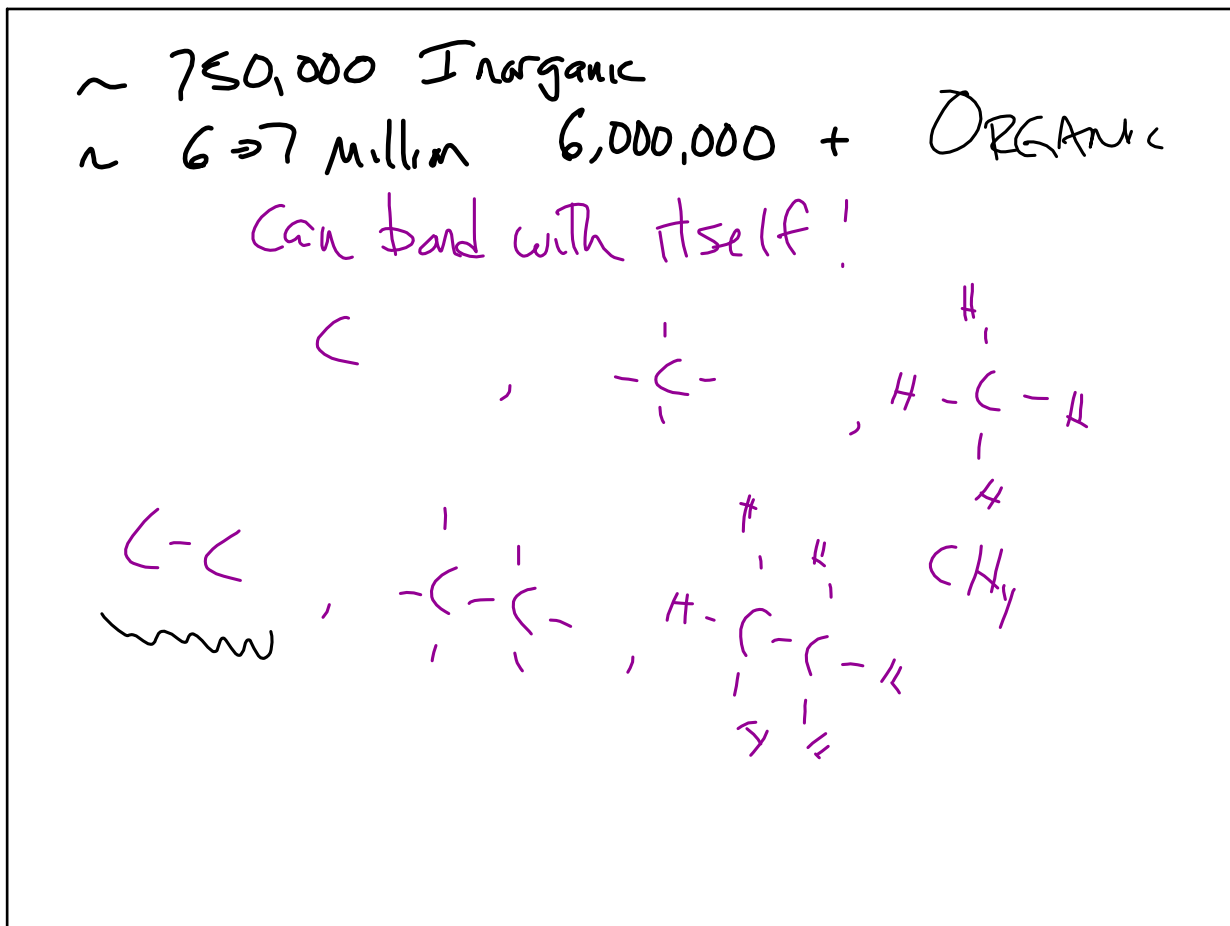 ~ 750,000 Inorganic
~ 6→7 Million 6,000,000 + ORGANIC
Can bond with itself!
C , -C- , H-C-H
H
H
CH4
C-C , -C-C- , H-C-C-H
H H
H H